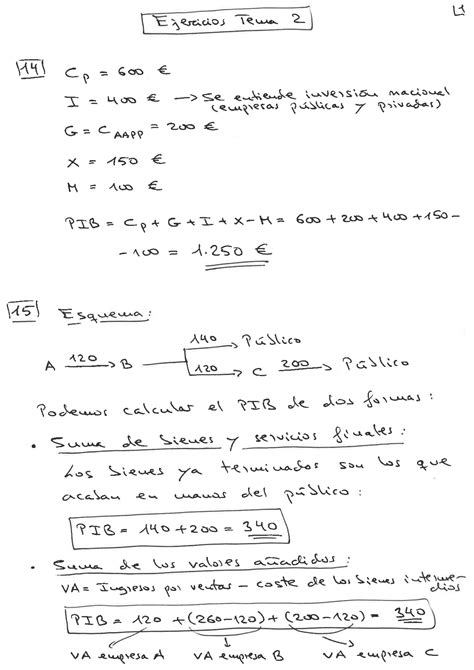 Ejercicios Tema 2
1
14 Cp = 600 €
I = 400 € → Se entiende inversión nacional
(empresas públicas y privadas)
G = C_AAPP = 200 €
X = 150 €
M = 100 €
PIB = Cp + G + I + X - M = 600 + 200 + 400 + 150 -
- 100 = 1.250 €
15 Esquema:
140 → Público
A 120 → B
120 → C 200 → Público
Podemos calcular el PIB de dos formas:
• Suma de bienes y servicios finales:
Los bienes ya terminados son los que
acaban en manos del público:
PIB = 140 + 200 = 340
• Suma de los valores añadidos:
VA = Ingresos por ventas - coste de los bienes interme-
dios
PIB = 120 + (260-120) + (200-120) = 340
VA empresa A VA empresa B VA empresa C